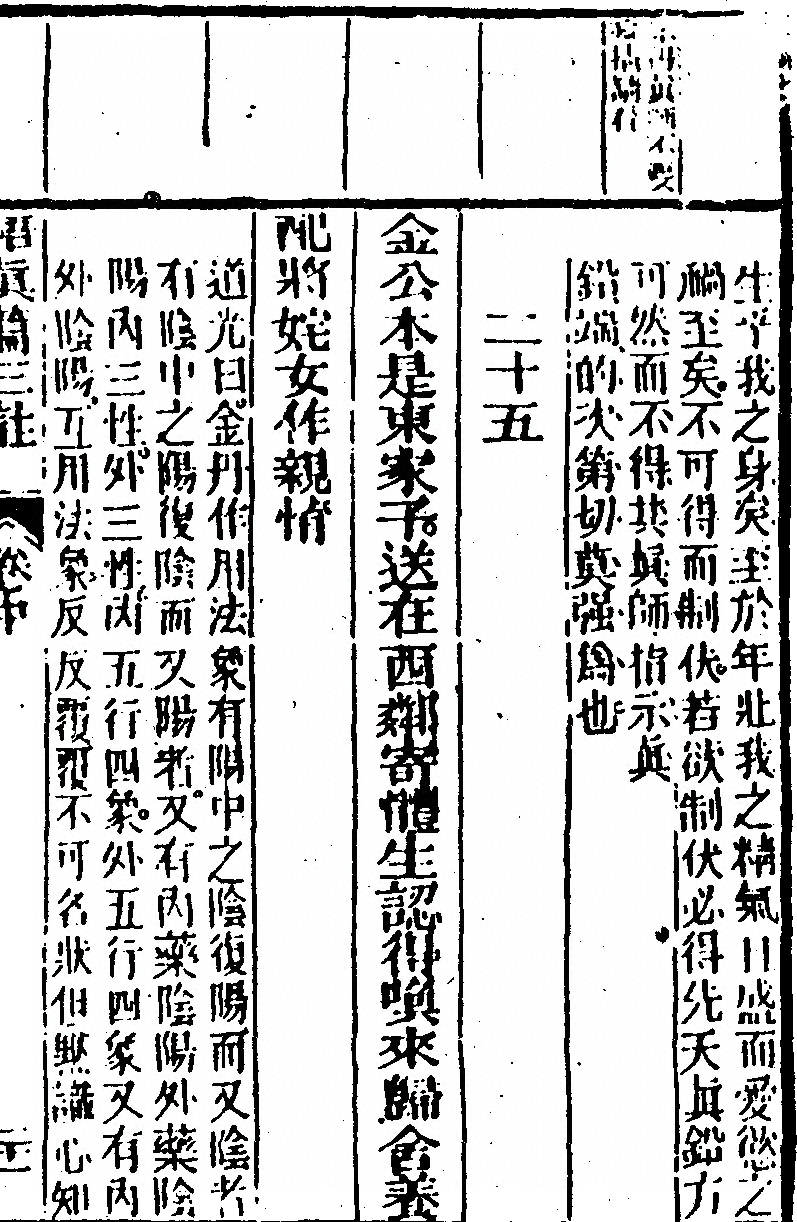 生平我之身矣至於年壯我之精氣日盛而愛慾之
禍至矣不可得而制伏若欲制伏必得先天眞鉛方
可然而不得其眞師指示眞
鉛端的次第切莫强爲也
二十五
金公本是東家子送在西鄰寄體生認得喚來歸舍養
配將姹女作親情
道光曰金丹作用法象有陽中之陰復陽而又陰者
有陰中之陽復陰而又陽者又有內藥陰陽外藥陰
陽內三性外三性內五行四象外五行四象又有內
外陰陽互用法象反反覆覆不可名狀但默識心知
悟眞篇三註 卷中